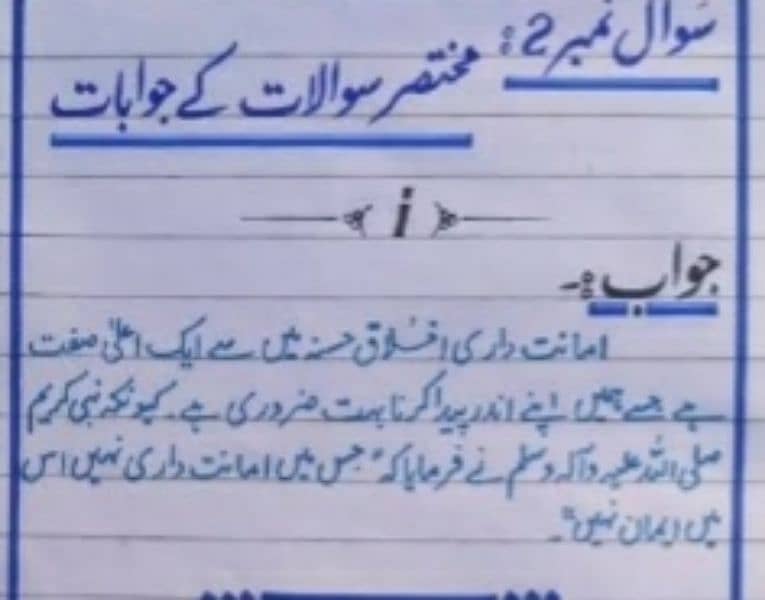 سوال نمبر 2:
مختصر سوالات کے جوابات
i
جواب:-
امانت داری اخلاق حسنہ میں سے ایک اعلیٰ صفت
ہے جسے ہمیں اپنے اندر پیدا کرنا بہت ضروری ہے۔ کیونکہ نبی کریم
صلی اللہ علیہ وآلہ وسلم نے فرمایا کہ "جس میں امانت داری نہیں اس
میں ایمان نہیں"۔